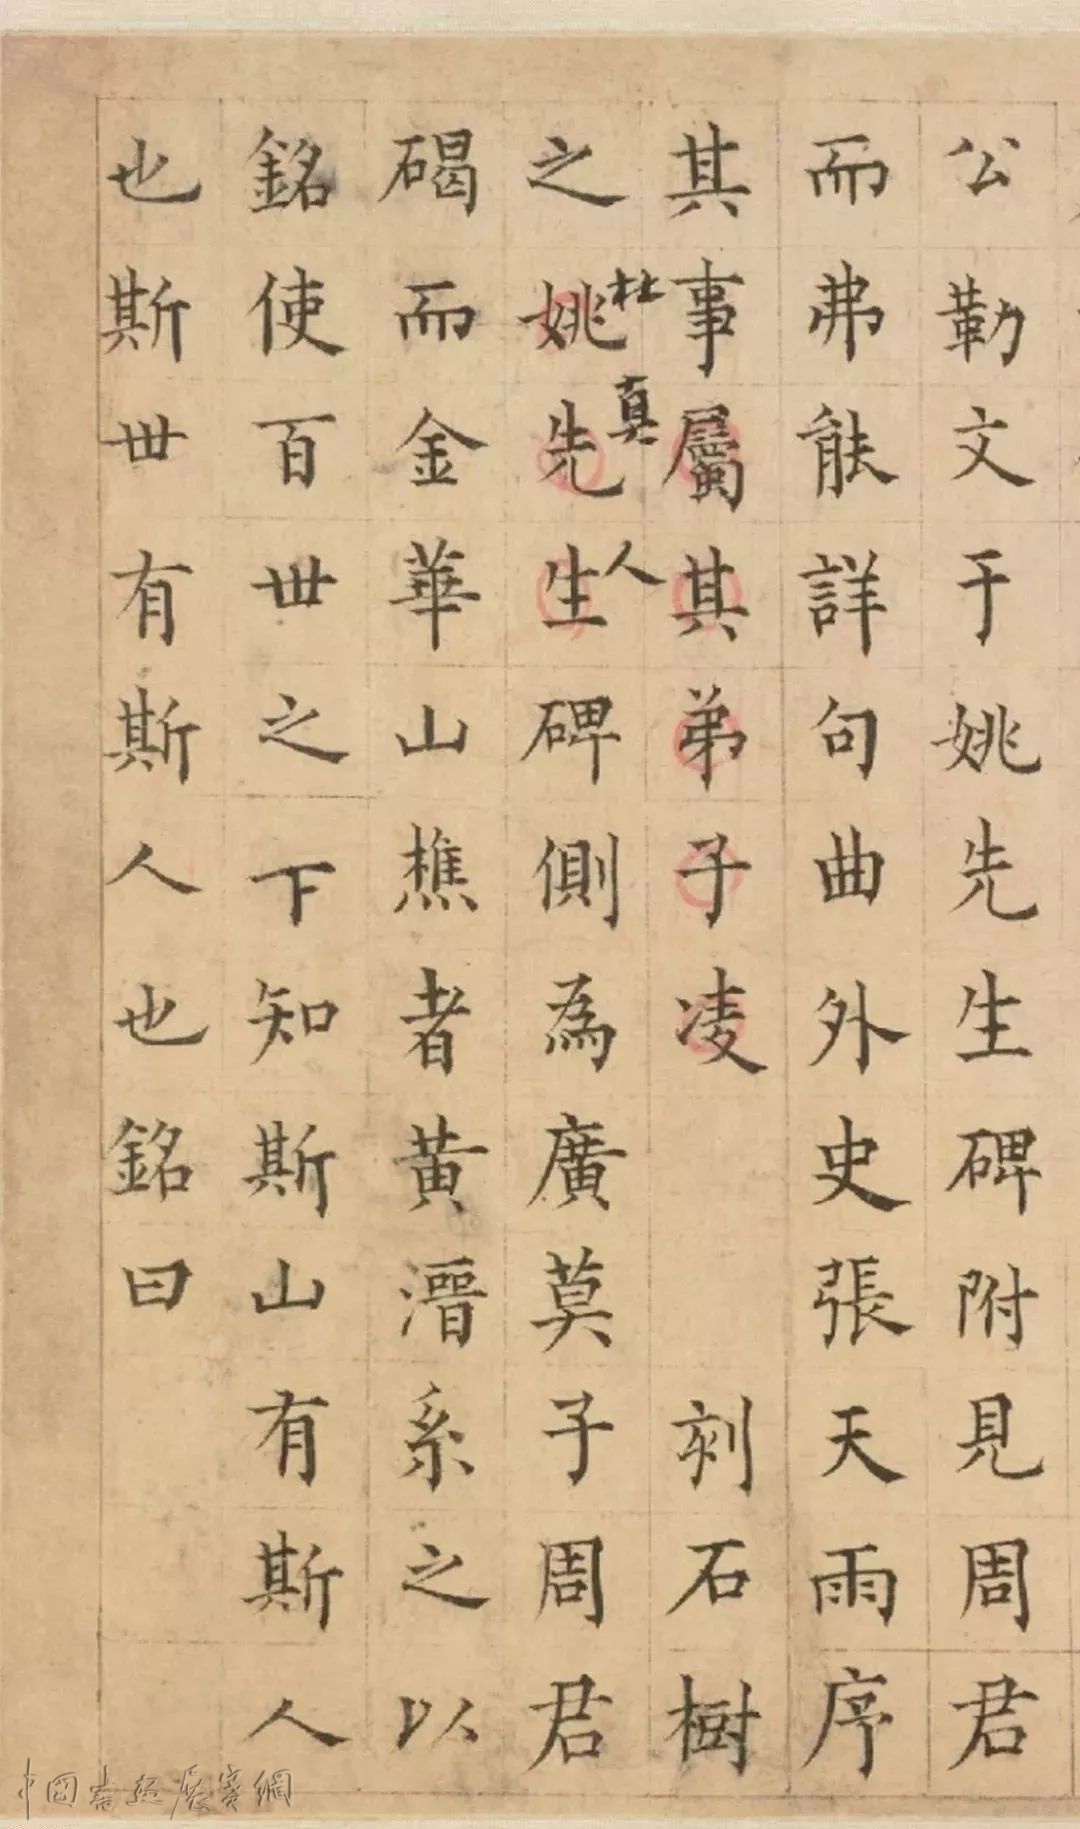 公勒文于姚先生碑附見周君
而弗能詳句曲外史張天雨序
其事屬其弟子凌刻石樹
之姚先生碑側為廣莫子周君
杜真人
碣而金華山樵者黃溍系之以
銘使百世之下知斯山有斯人
也斯世有斯人也銘曰
中國書法展賽網